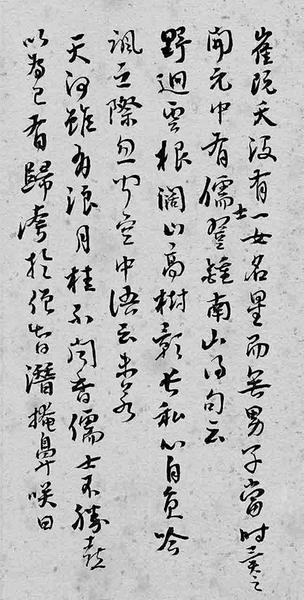 崔既夭没有一女名星而無男子當時異之
開元中有儒士登鍾南山得句云
野迥雲根闊山高樹影長私心自負吟
諷之際忽聞空中語云未若
天河雖有浪月桂不聞香儒士不勝喜
以為己有歸誇於僧皆潛掩鼻咲曰